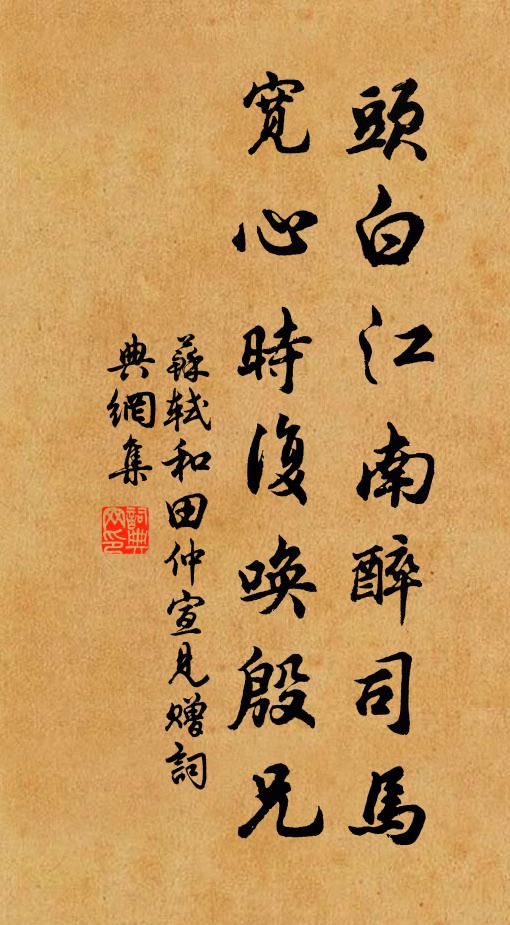 頭白江南醉司馬
寬心時復喚殷兄
蘇軾和田仲宣見贈詞
典網集
詞典網印